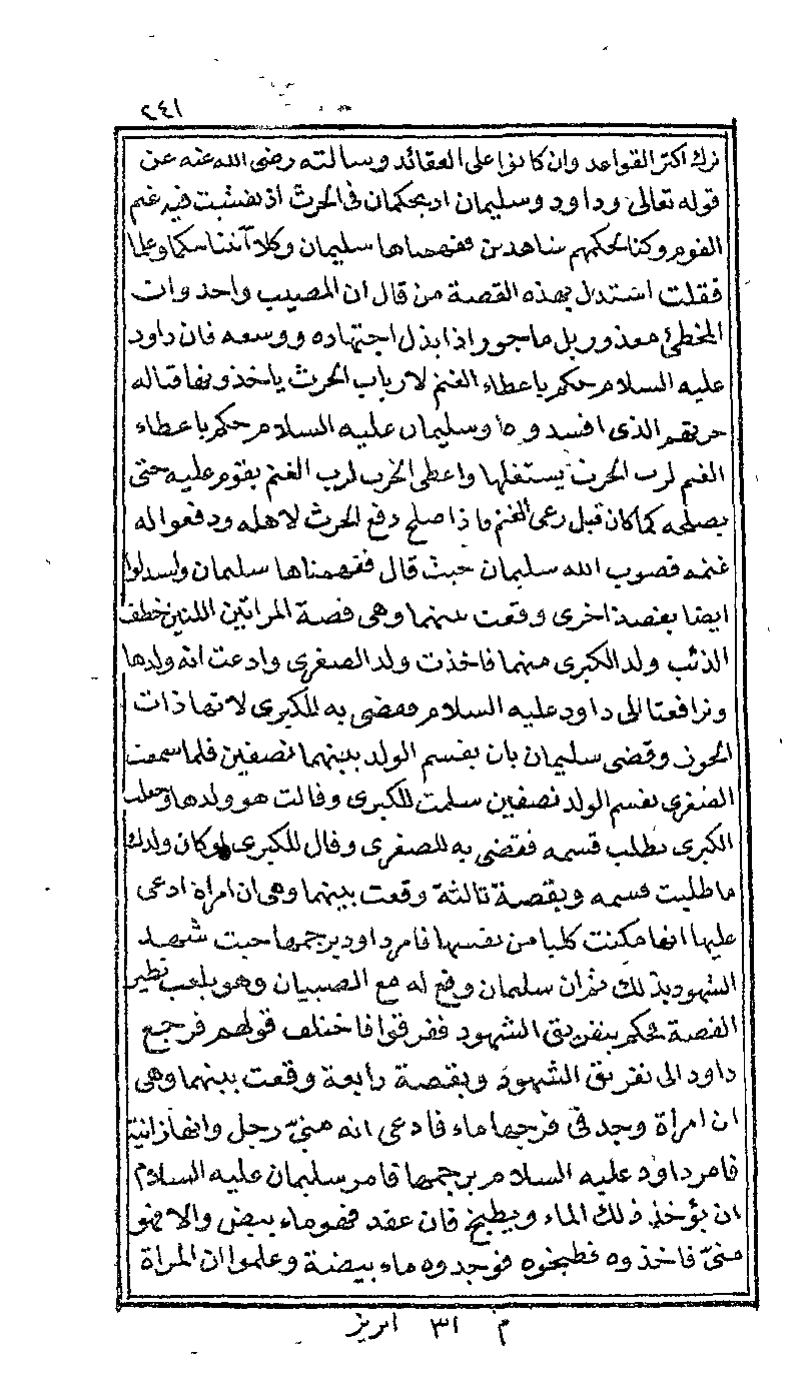 ٢٤١
ترك اكثر القواعد وان كانوا على العقائد وسالته رضى الله عنه عن
قوله تعالى وداود وسليمان اذ يحكمان فى الحرث اذ نفشت فيه غنم
القوم وكنا لحكمهم شاهدين ففهمناها سليمان وكلا آتينا حكما وعلما
فقلت استدل بهذه القصة من قال ان المصيب واحد وان
المخطئ معذور بل ماجور اذا بذل اجتهاده ووسعه فان داود
عليه السلام حكم باعطاء الغنم لارباب الحرث ياخذونها قبالة
حرثهم الذى افسدوه وسليمان عليه السلام حكم باعطاء
الغنم لرب الحرث يستغلها واعطى الحرث لرب الغنم يقوم عليه حتى
يصلحه كما كان قبل رعى الغنم فاذا صلح دفع الحرث لاهله ودفعوا له
غنمه فصوب الله سليمان حيث قال ففهمناها سليمان واستدلوا
ايضا بقصة اخرى وقعت بينهما وهى قصة المراتين اللتين خطف
الذئب ولد الكبرى منهما فاخذت ولد الصغرى وادعت انه ولدها
وترافعتا الى داود عليه السلام فقضى به للكبرى لانها ذات
الحوز وقضى سليمان بان يقسم الولد بينهما نصفين فلما سمعت
الصغرى بقسم الولد نصفين سلمت للكبرى وقالت هو ولدها وجعلت
الكبرى تطلب قسمه فقضى به للصغرى وقال للكبرى لو كان ولدك
ما طلبت قسمه وبقصة ثالثة وقعت بينهما وهى ان امراة ادعى
عليها انها مكنت كلبا من نفسها فامر داود برجمها حيث شهد
الشهود بذلك ثم ان سليمان وقع له مع الصبيان وهو يلعب نظير
القصة فحكم بتفريق الشهود ففرقوا فاختلف قولهم فرجع
داود الى تفريق الشهود وبقصة رابعة وقعت بينهما وهى
ان امراة وجد فى فرجها ماء فادعى انه منى رجل وانها زانية
فامر داود عليه السلام برجمها فامر سليمان عليه السلام
ان يؤخذ ذلك الماء ويطبخ فان عقد فهو ماء بيض والا فهو
منىّ فاخذوه فطبخوه فوجدوه ماء بيضة وعلموا ان المراة
م ٣١ ابريز